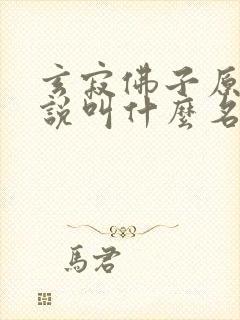 玄寂佛子原
說叫什麼名
馬君